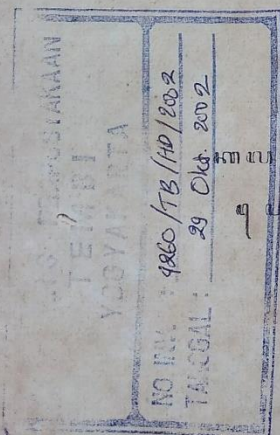 PERPUSTAKAAN
TEMBI
YOGYAKARTA
NO INV. : 4260/TB/HD/2002
TANGGAL : 29 Okt. 2002